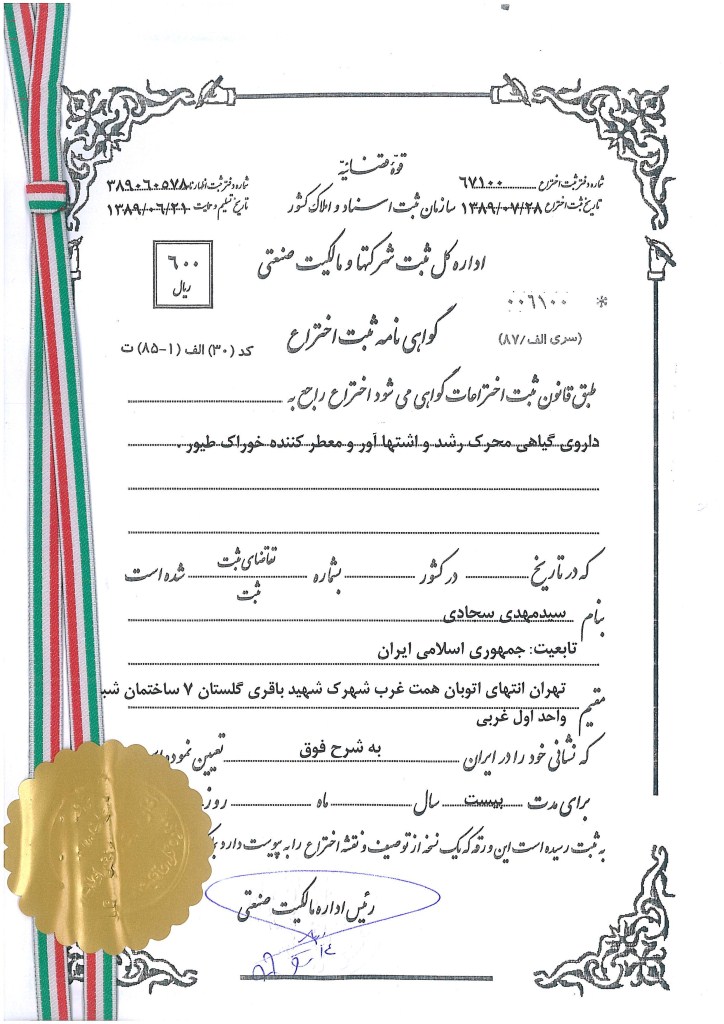 قوهٔ قضائیه
شماره دفتر ثبت اختراع ۶۷۱۰۰
شماره دفتر ثبت اظهارنامه ۳۸۹۰۶۰۵۷۸
تاریخ ثبت اختراع ۱۳۸۹/۰۷/۲۸
سازمان ثبت اسناد و املاک کشور
تاریخ تسلیم و حمایت ۱۳۸۹/۰۶/۲۱
اداره کل ثبت شرکتها و مالکیت صنعتی
۶۰۰
ریال
* ۰۰۶۱۰۰
(سری الف/۸۷)
گواهی نامه ثبت اختراع
کد (۳۰) الف (۱-۸۵) ت
طبق قانون ثبت اختراعات گواهی می شود اختراع راجع به
داروی گیاهی محرک رشد و اشتها آور و معطر کننده خوراک طیور .
که در تاریخ در کشور بشماره تقاضای ثبت شده است
ثبت
بنام سیدمهدی سجادی
تابعیت: جمهوری اسلامی ایران
مقیم تهران انتهای اتوبان همت غرب شهرک شهید باقری گلستان ۷ ساختمان
واحد اول غربی
که نشانی خود را در ایران به شرح فوق تعیین نموده
برای مدت بیست سال ماه روز
به ثبت رسیده است این ورقه که یک نسخه از توصیف و نقشه اختراع را به پیوست دارد
رئیس اداره مالکیت صنعتی